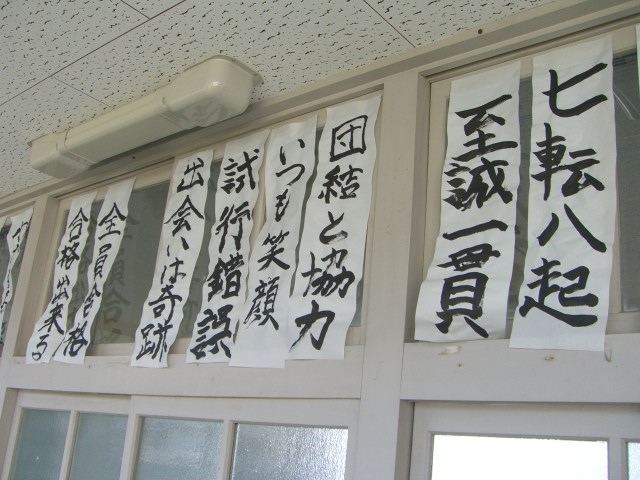 七転八起
至誠一貫
団結と協力
いつも笑顔
試行錯誤
出会いは奇跡
全員合格
合格出来る